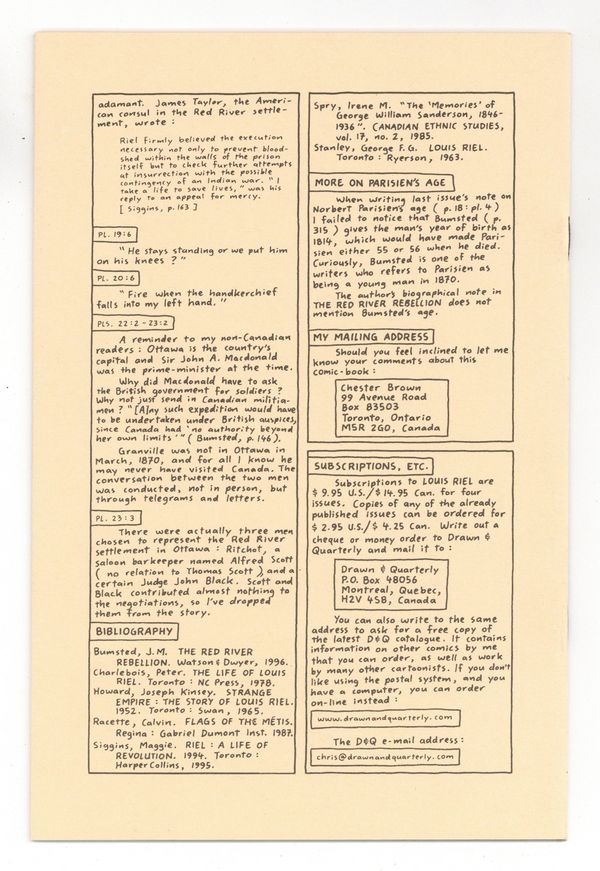 adamant. James Taylor, the Ameri-
can consul in the Red River settle-
ment, wrote :
Riel firmly believed the execution
necessary not only to prevent blood-
shed within the walls of the prison
itself but to check further attempts
at insurrection with the possible
contingency of an Indian war. "I
take a life to save lives," was his
reply to an appeal for mercy.
[ Siggins, p. 163 ]
PL. 19:6
"He stays standing or we put him
on his knees ?"
PL. 20:6
"Fire when the handkerchief
falls into my left hand."
PLS. 22:2 - 23:2
A reminder to my non-Canadian
readers : Ottawa is the country's
capital and Sir John A. Macdonald
was the prime-minister at the time.
Why did Macdonald have to ask
the British government for soldiers ?
Why not just send in Canadian militia-
men ? "[A]ny such expedition would have
to be undertaken under British auspices,
since Canada had 'no authority beyond
her own limits'" ( Bumsted, p. 146 ).
Granville was not in Ottawa in
March, 1870, and for all I know he
may never have visited Canada. The
conversation between the two men
was conducted, not in person, but
through telegrams and letters.
PL. 23:3
There were actually three men
chosen to represent the Red River
settlement in Ottawa : Ritchot, a
saloon barkeeper named Alfred Scott
( no relation to Thomas Scott ), and a
certain Judge John Black. Scott and
Black contributed almost nothing to
the negotiations, so I've dropped
them from the story.
BIBLIOGRAPHY
Bumsted, J.M. THE RED RIVER
REBELLION. Watson & Dwyer, 1996.
Charlebois, Peter. THE LIFE OF LOUIS
RIEL. Toronto : NC Press, 1978.
Howard, Joseph Kinsey. STRANGE
EMPIRE : THE STORY OF LOUIS RIEL.
1952. Toronto : Swan, 1965.
Racette, Calvin. FLAGS OF THE MÉTIS.
Regina : Gabriel Dumont Inst. 1987.
Siggins, Maggie. RIEL : A LIFE OF
REVOLUTION. 1994. Toronto :
HarperCollins, 1995.
Spry, Irene M. "The 'Memories' of
George William Sanderson, 1846-
1936". CANADIAN ETHNIC STUDIES,
vol. 17, no. 2, 1985.
Stanley, George F.G. LOUIS RIEL.
Toronto : Ryerson, 1963.
MORE ON PARISIEN'S AGE
When writing last issue's note on
Norbert Parisien's age ( p. 18 : pl. 4 )
I failed to notice that Bumsted ( p.
315 ) gives the man's year of birth as
1814, which would have made Pari-
sien either 55 or 56 when he died.
Curiously, Bumsted is one of the
writers who refers to Parisien as
being a young man in 1870.
The author's biographical note in
THE RED RIVER REBELLION does not
mention Bumsted's age.
MY MAILING ADDRESS
Should you feel inclined to let me
know your comments about this
comic-book :
Chester Brown
99 Avenue Road
Box 83503
Toronto, Ontario
M5R 2G0, Canada
SUBSCRIPTIONS, ETC.
Subscriptions to LOUIS RIEL are
$ 9.95 U.S./$ 14.95 Can. for four
issues. Copies of any of the already
published issues can be ordered for
$ 2.95 U.S./$ 4.25 Can. Write out a
cheque or money order to Drawn &
Quarterly and mail it to :
Drawn & Quarterly
P.O. Box 48056
Montreal, Quebec,
H2V 4S8, Canada
You can also write to the same
address to ask for a free copy of
the latest D&Q catalogue. It contains
information on other comics by me
that you can order, as well as work
by many other cartoonists. If you don't
like using the postal system, and you
have a computer, you can order
on-line instead :
www.drawnandquarterly.com
The D&Q e-mail address :
chris@drawnandquarterly.com